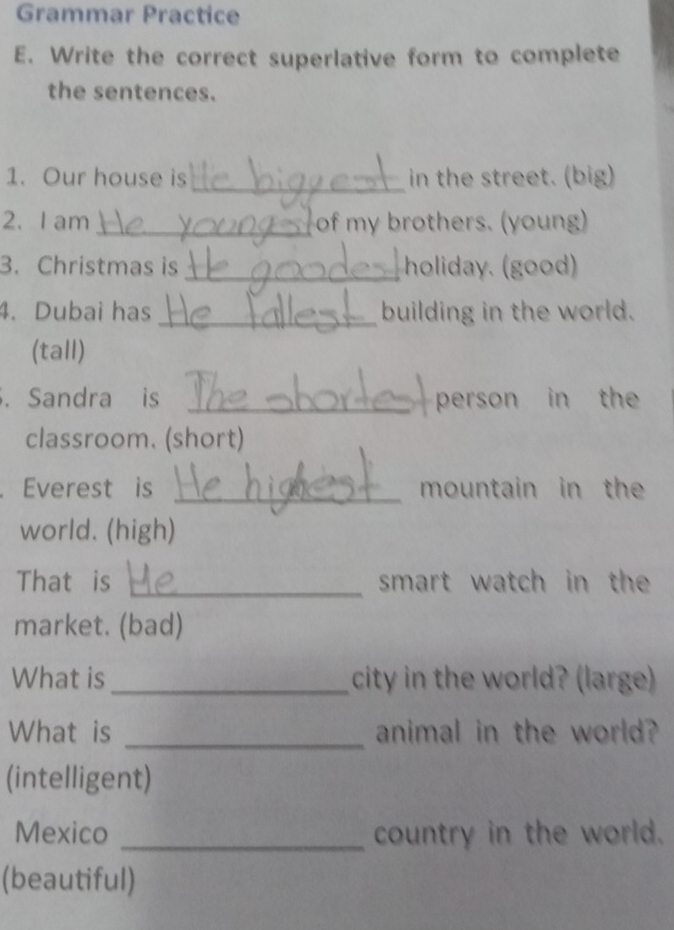 Grammar Practice
E. Write the correct superlative form to complete
the sentences.
1. Our house is He biggest in the street. (big)
2. I am He youngst of my brothers. (young)
3. Christmas is He goodest holiday. (good)
4. Dubai has He tallest building in the world.
(tall)
. Sandra is The shortest person in the
classroom. (short)
. Everest is He highest mountain in the
world. (high)
That is He smart watch in the
market. (bad)
What is city in the world? (large)
What is animal in the world?
(intelligent)
Mexico country in the world.
(beautiful)